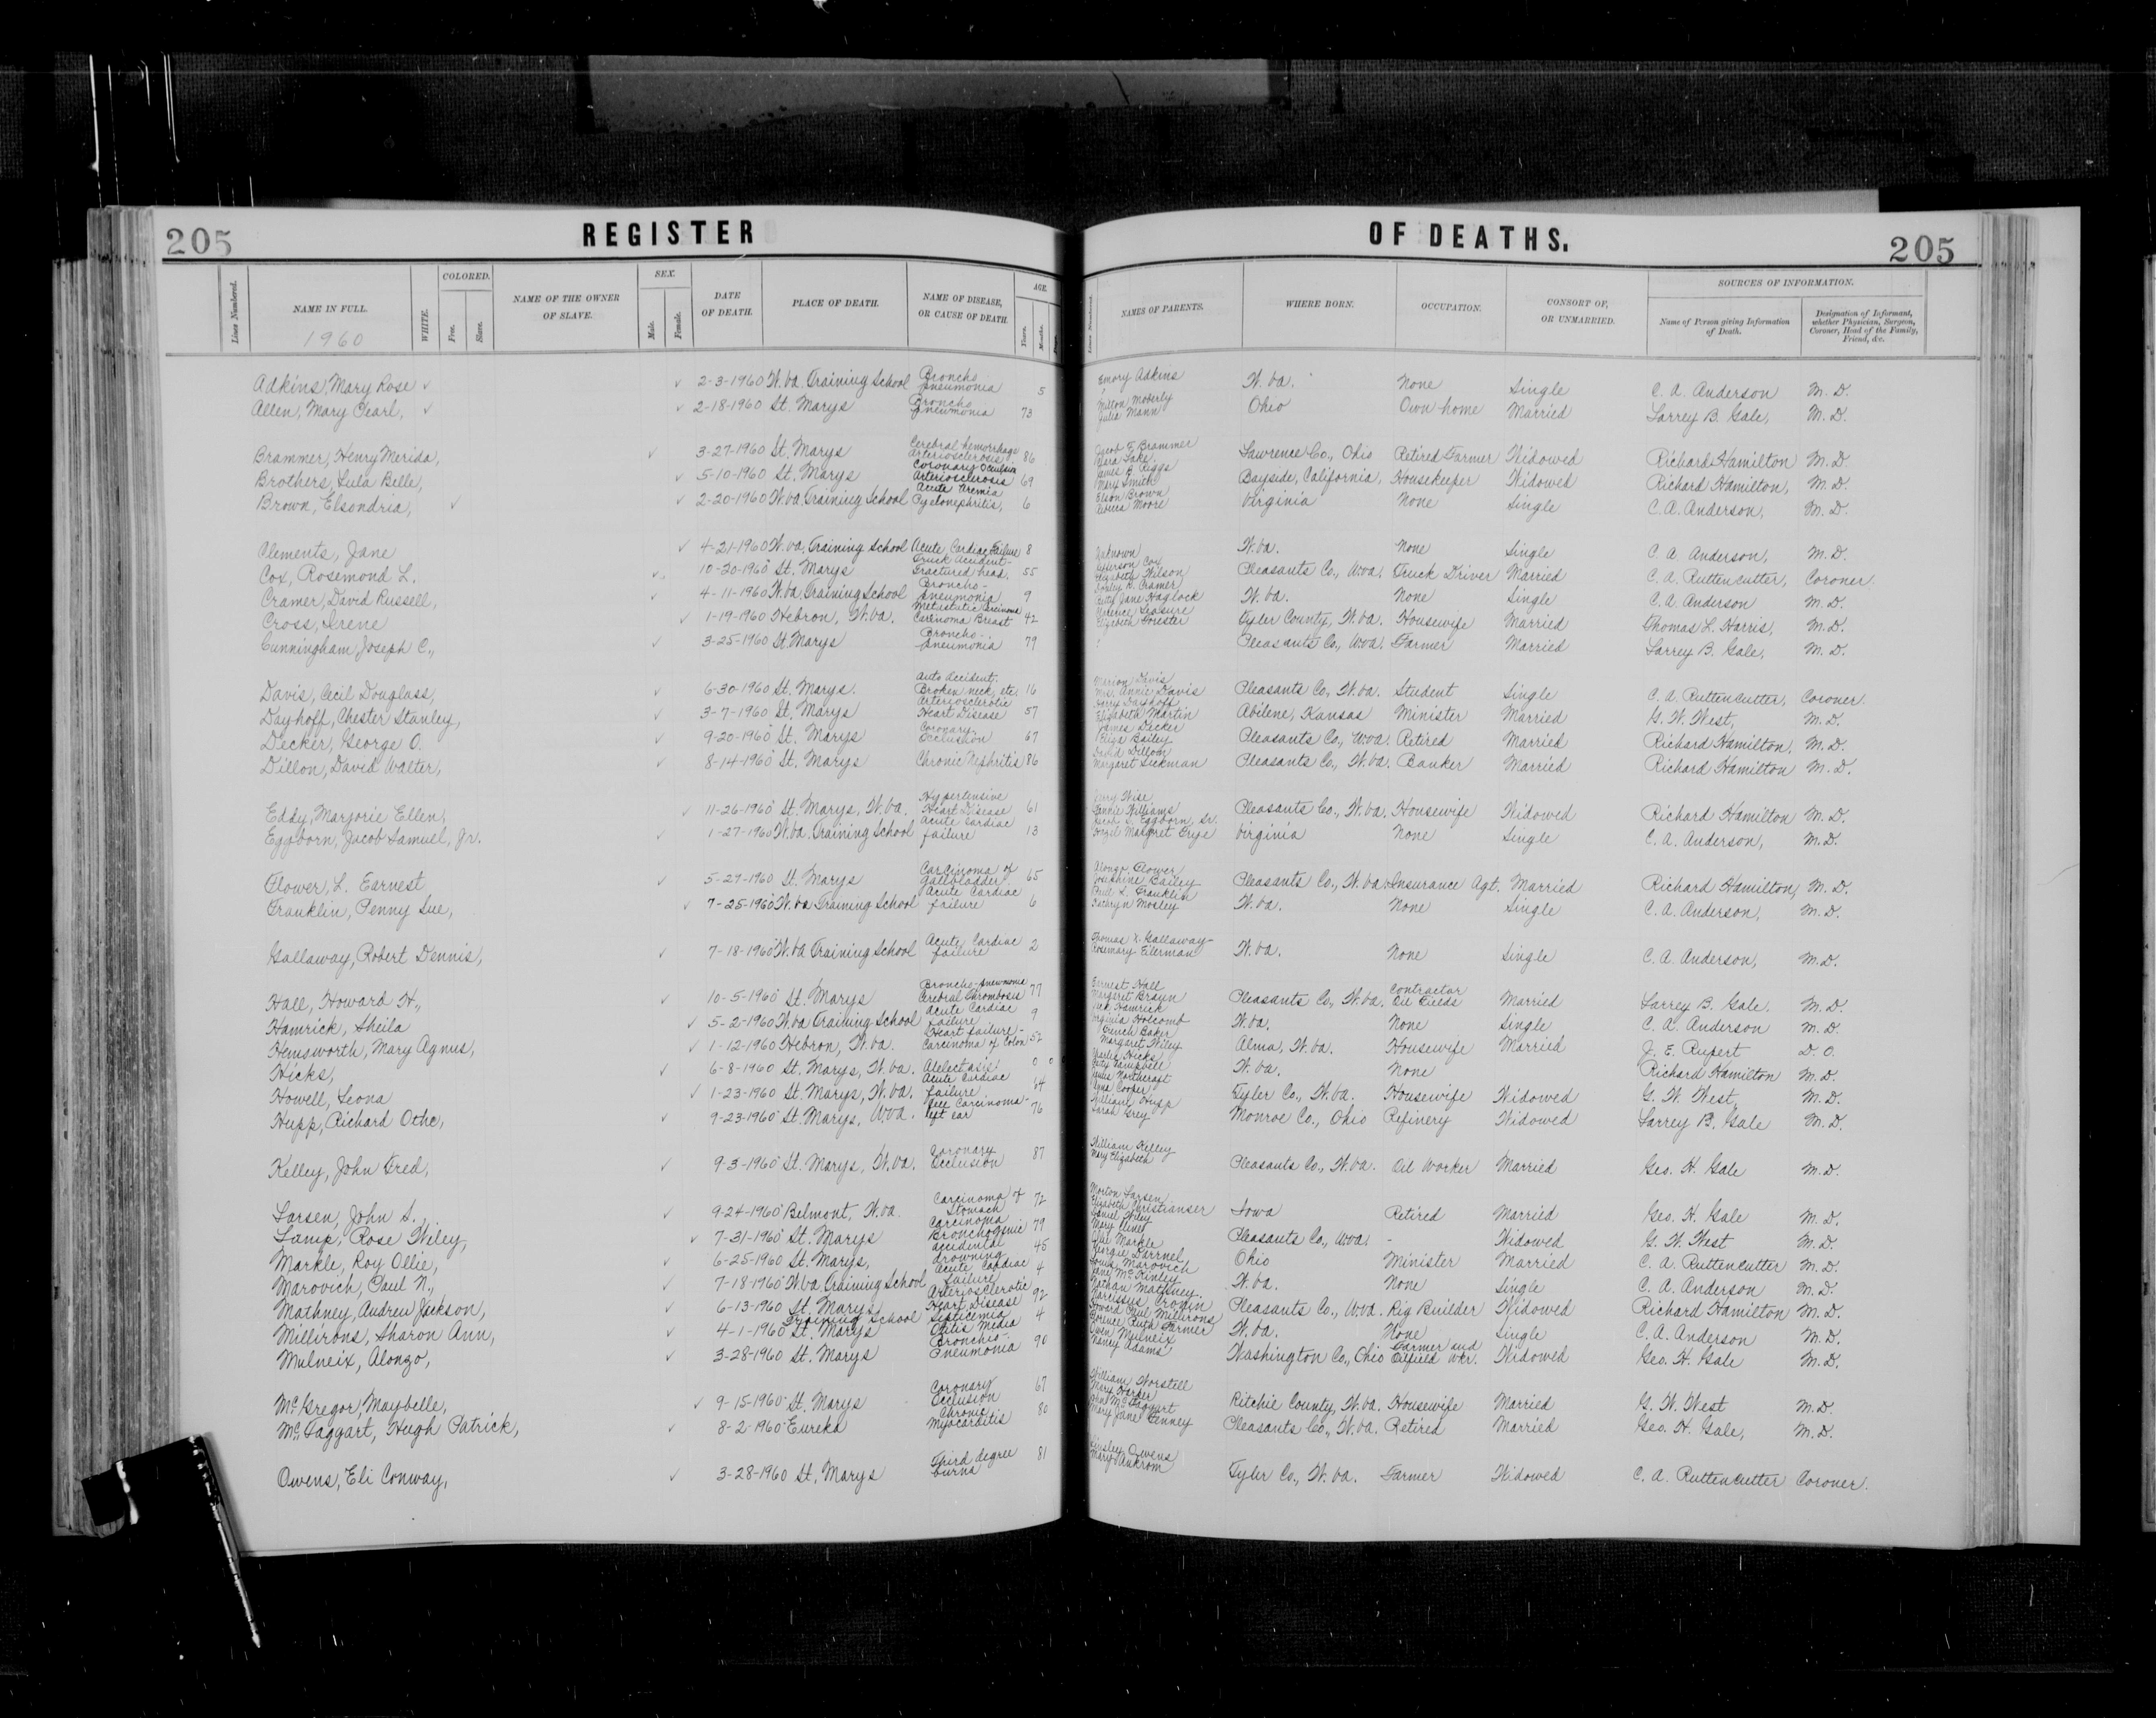 205 REGISTER OF DEATHS. 205
Lines Numbered. NAME IN FULL. WHITE. COLORED. Free. Slave. NAME OF THE OWNER OF SLAVE. SEX. Male. Female. DATE OF DEATH. PLACE OF DEATH. NAME OF DISEASE, OR CAUSE OF DEATH. AGE. Years. Months. NAMES OF PARENTS. WHERE BORN. OCCUPATION. CONSORT OF, OR UNMARRIED. SOURCES OF INFORMATION. Name of Person giving Information of Death. Designation of Informant, whether Physician, Surgeon, Coroner, Head of the Family, Friend, &c.
1960
Adkins, Mary Rose ✓ ✓ 2-3-1960 W. Va. Training School Broncho pneumonia 5 Emory Adkins W. Va. None Single C. A. Anderson M. D.
Allen, Mary Pearl, ✓ ✓ 2-18-1960 St. Marys Broncho pneumonia 73 Milton Moberly Julia Mann Ohio Own home Married Larrey B. Gale, M. D.
Brammer, Henry Merida, ✓ 3-27-1960 St. Marys Cerebral hemorrhage Arteriosclerosis 86 Jacob F. Brammer Lawrence Co., Ohio Retired Farmer Widowed Richard Hamilton M. D.
Brothers, Lula Belle, ✓ 5-10-1960 St. Marys Coronary Occlusion Arteriosclerosis 69 James B. Riggs Mary Smith Bayside, California, Housekeeper Widowed Richard Hamilton, M. D.
Brown, Elsondria, ✓ ✓ 2-20-1960 W. Va. Training School Acute Uremia Pyelonephritis, 6 Elson Brown Moore Virginia None Single C. A. Anderson, M. D.
Clements, Jane ✓ 4-21-1960 W. Va. Training School Acute Cardiac Failure 8 Unknown W. Va. None Single C. A. Anderson, M. D.
Cox, Rosemond L. ✓ 10-20-1960 St. Marys Truck Accident- Fractured head. 55 Jefferson Cox Elizabeth Wilson Pleasants Co., W. Va. Truck Driver Married C. A. Ruttencutter, Coroner.
Cramer, David Russell, ✓ 4-11-1960 W. Va. Training School Broncho- pneumonia 9 Cramer Ruth Jane Haglock W. Va. None Single C. A. Anderson M. D.
Cross, Irene ✓ 1-19-1960 Hebron, W. Va. Metastatic Carcinoma Carcinoma Breast 42 Leasure Elizabeth Forester Tyler County, W. Va. Housewife Married Thomas L. Harris, M. D.
Cunningham, Joseph C., ✓ 3-25-1960 St. Marys Broncho- pneumonia 79 Pleasants Co., W. Va. Farmer Married Larrey B. Gale, M. D.
Davis, Cecil Douglass, ✓ 6-30-1960 St. Marys. Auto Accident. Broken neck, etc. 16 Marion Davis Mrs. Annie Davis Pleasants Co., W. Va. Student Single C. A. Ruttencutter, Coroner.
Dayhoff, Chester Stanley, ✓ 3-7-1960 St. Marys Arteriosclerotic Heart Disease 57 Dayhoff Elizabeth Martin Abilene, Kansas Minister Married G. W. West, M. D.
Decker, George O. ✓ 9-20-1960 St. Marys Coronary Occlusion 67 James Decker Bailey Pleasants Co., W. Va. Retired Married Richard Hamilton, M. D.
Dillon, David Walter, ✓ 8-14-1960 St. Marys Chronic Nephritis 86 David Dillon Margaret Sickman Pleasants Co., W. Va. Banker Married Richard Hamilton M. D.
Eddy, Marjorie Ellen, ✓ 11-26-1960 St. Marys, W. Va. Hypertensive Heart Disease 61 Wise Fannie Williams Pleasants Co., W. Va. Housewife Widowed Richard Hamilton M. D.
Eggborn, Jacob Samuel, Jr. ✓ 1-27-1960 W. Va. Training School Acute Cardiac failure 13 Jacob S. Eggborn, Sr. Margret Virginia None Single C. A. Anderson, M. D.
Flower, L. Earnest ✓ 5-27-1960 St. Marys Carcinoma of Gallbladder 65 Alonzo Flower Bailey Pleasants Co., W. Va. Insurance Agt. Married Richard Hamilton, M. D.
Franklin, Penny Sue, ✓ 7-25-1960 W. Va Training School Acute Cardiac failure 6 Paul L. Franklin Kathryn Mosley W. Va. None Single C. A. Anderson, M. D.
Gallaway, Robert Dennis, ✓ 7-18-1960 W. Va Training School Acute Cardiac failure 2 Thomas Gallaway- Rosemary Eilerman W. Va. None Single C. A. Anderson, M. D.
Hall, Howard H., ✓ 10-5-1960 St. Marys Broncho-pneumonia Cerebral Thrombosis 77 Earnest Hall Margaret Braun Pleasants Co., W. Va. Contractor Oil Fields Married Larrey B. Gale. M. D.
Hamrick, Sheila ✓ 5-2-1960 W. Va Training School Acute Cardiac failure 9 Jack Hamrick Virginia Holcomb W. Va. None Single C. A. Anderson M. D.
Hemsworth, Mary Agnes, ✓ 1-12-1960 Hebron, W. Va. Heart failure- Carcinoma of Colon 52 Baker Margaret Wiley Alma, W. Va. Housewife Married J. E. Rupert D. O.
Hicks, ✓ 6-8-1960 St. Marys, W. Va. Atelectasis 0 0 Charlie Hicks Betty Campbell W. Va. None Richard Hamilton M. D.
Howell, Leona ✓ 1-23-1960 St. Marys, W. Va. Acute Cardiac failure 64 James Northcraft Cooper Tyler Co., W. Va. Housewife Widowed G. W. West, M. D.
Hupp, Richard Othe, ✓ 9-23-1960 St. Marys, W. Va. Cell Carcinoma- left ear 76 William Hupp Sarah Grey Monroe Co., Ohio Refinery Widowed Larrey B. Gale M. D.
Kelley, John Fred, ✓ 9-3-1960 St. Marys, W. Va. Coronary Occlusion 87 William Kelley Mary Elizabeth Pleasants Co., W. Va. Oil Worker Married Geo. H. Gale M. D.
Larsen, John S. ✓ 9-24-1960 Belmont, W. Va. Carcinoma of Stomach 72 Morton Larsen Elizabeth Christianser Iowa Retired Married Geo. H. Gale M. D.
Lamp, Rose Wiley, ✓ 7-31-1960 St. Marys Carcinoma Bronchogenic 79 Daniel Wiley Mary Pleasants Co., W. Va. - Widowed G. W. West M. D.
Markle, Roy Ollie, ✓ 6-25-1960 St. Marys, accidental drowning 45 Markle Georgie Darrnel Ohio Minister Married C. A. Ruttencutter M. D.
Marovich, Paul N., ✓ 7-18-1960 W. Va. Training School Acute Cardiac failure 4 Louis Marovich Jane McKinley W. Va. None Single C. A. Anderson M. D.
Mathney, Andrew Jackson, ✓ 6-13-1960 St. Marys Arteriosclerotic Heart Disease 92 Nathan Mathney Narcissus Cronin Pleasants Co., W. Va. Rig Builder Widowed Richard Hamilton M. D.
Millirons, Sharon Ann, ✓ 4-1-1960 Training School St. Marys Septicemia Otitis Media 4 Howard Paul Millirons Ruth Farmer W. Va. None Single C. A. Anderson M. D.
Mulneix, Alonzo, ✓ 3-28-1960 St. Marys Broncho- Pneumonia 90 Owen Mulneix Nancy Adams Washington Co., Ohio Farmer and Oilfield Wkr. Widowed Geo. H. Gale M. D.
McGregor, Maybelle, ✓ 9-15-1960 St. Marys Coronary Occlusion 67 William Worstell Mary Harper Ritchie County, W. Va. Housewife Married G. W. West M. D.
McTaggart, Hugh Patrick, ✓ 8-2-1960 Eureka Chronic Myocarditis 80 John McTaggart Mary Jane Tenney Pleasants Co., W. Va. Retired Married Geo. H. Gale, M. D.
Owens, Eli Conway, ✓ 3-28-1960 St. Marys Third degree burns 81 Owens Mary Ankrom Tyler Co., W. Va. Farmer Widowed C. A. Ruttencutter Coroner.